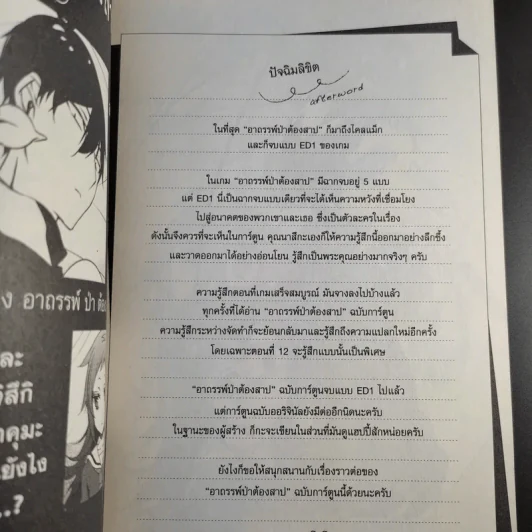 ปัจฉิมลิขิต
afterword
ในที่สุด "อาถรรพ์ป่าต้องสาป" ก็มาถึงไคลแม็ก
และก็จบแบบ ED1 ของเกม
ในเกม "อาถรรพ์ป่าต้องสาป" มีฉากจบอยู่ 5 แบบ
แต่ ED1 นี้เป็นฉากจบแบบเดียวที่จะได้เห็นความหวังที่เชื่อมโยง
ไปสู่อนาคตของพวกเขาและเธอ ซึ่งเป็นตัวละครในเรื่อง
ดังนั้นจึงควรที่จะเห็นในการ์ตูน คุณนาสึกะเองก็ให้ความรู้สึกนี้ออกมาอย่างลึกซึ้ง
และวาดออกมาได้อย่างอ่อนโยน รู้สึกเป็นพระคุณอย่างมากจริงๆ ครับ
ความรู้สึกตอนที่เกมเสร็จสมบูรณ์ มันจางลงไปบ้างแล้ว
ทุกครั้งที่ได้อ่าน "อาถรรพ์ป่าต้องสาป" ฉบับการ์ตูน
ความรู้สึกระหว่างจัดทำก็จะย้อนกลับมาและรู้สึกถึงความแปลกใหม่อีกครั้ง
โดยเฉพาะตอนที่ 12 จะรู้สึกแบบนั้นเป็นพิเศษ
"อาถรรพ์ป่าต้องสาป" ฉบับการ์ตูนจบแบบ ED1 ไปแล้ว
แต่การ์ตูนฉบับออริจินัลยังมีต่ออีกนิดนะครับ
ในฐานะของผู้สร้าง ก็กะจะเขียนในส่วนที่มันดูแฮปปี้สักหน่อยครับ
ยังไงก็ขอให้สนุกสนานกับเรื่องราวต่อของ
"อาถรรพ์ป่าต้องสาป" ฉบับการ์ตูนนี้ด้วยนะครับ
อาถรรพ์ ป่า ต้อ
ละ
สึกิ
าคุมะ
ยังไง
...?